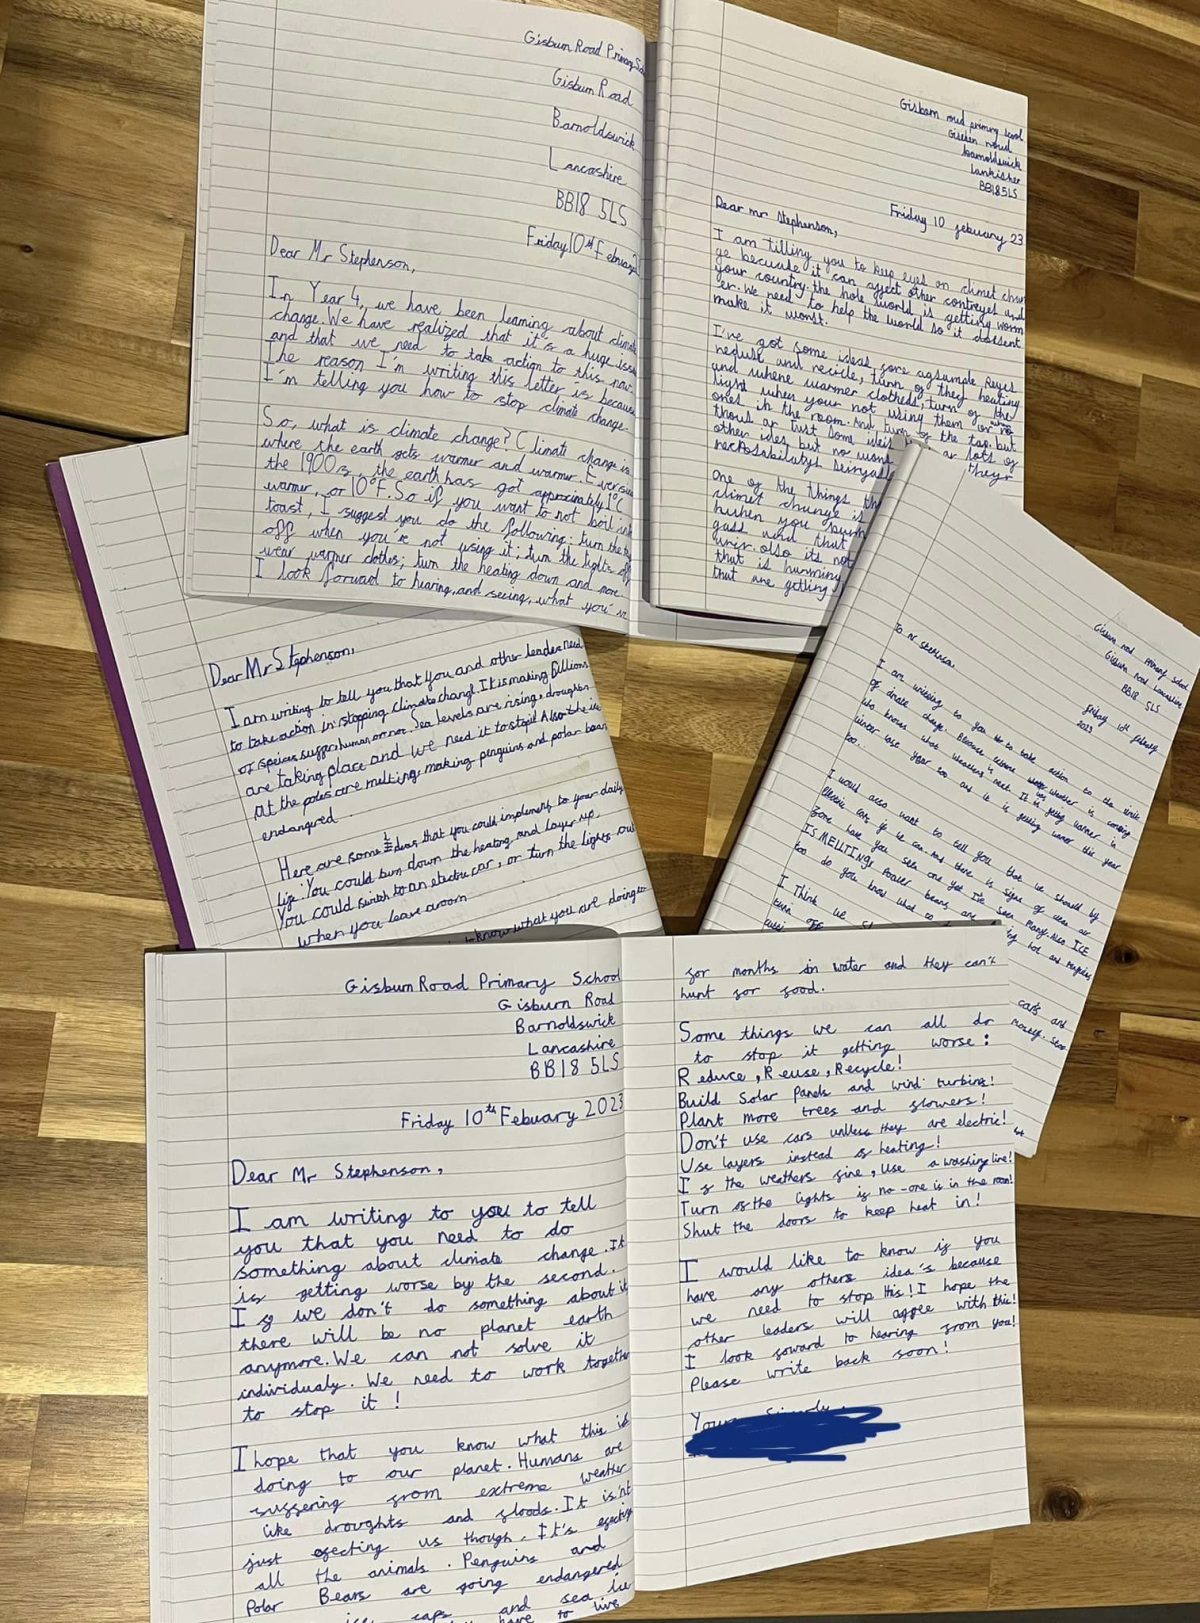 Gisburn Road Primary Sch
Gisburn Road
Barnoldswick
Lancashire
BB18 5LS
Friday 10th February
Dear Mr Stephenson,
In Year 4, we have been learning about climate
change. We have realized that it's a huge issu
and that we need to take action to this now.
The reason I'm writing this letter is because
I'm telling you how to stop climate change.
So, what is climate change? Climate change is
where the earth gets warmer and warmer. Ever since
the 1900s, the earth has got approximately 1°C
warmer, or 10°F. So if you want to not boil into
toast, I suggest you do the following: turn the
off when you're not using it; turn the lights off
wear warmer clothes; turn the heating down and more
I look forward to hearing, and seeing, what you're
Gisbern rood primary scool
Gisben roud
barnoldswick
Lankisher
BB18 5LS
Friday 10 febuary 23
Dear mr Stephenson,
I am tilling you to keep eyes on climet chan
ge becuase it can affect other contreyes and
your country. the hole world is getting worm
er. We need to help the world so it dossent
make it worst.
I've got some ideas fore agsample Reyos
reduse and recicle, turn of they heating
and where warmer clotheds, turn of the
light when your not using them or no
ones in the room. And turn of the tap. but
thous ar just some or lots of
other ides but no they
One of the things th
climet change is
when you burn
gass and that
also its not
that is humming
that are getting
Dear Mr Stephenson,
I am writing to tell you that you and other leaders need
to take action in stopping climate change. It is making billions
of species suffer, human or not. Sea levels are rising, droughts
are taking place and we need it to stop! Also the ice
At the poles are melting making penguins and polar bears
endangered.
Here are some ideas that you could implement to your daily
life: You could turn down the heating and layer up.
You could switch to an electric car, or turn the lights out
when you leave a room.
to know what you are doing to
Gisburn road primary school
Gisburn road Lancashire
BB18 5LS
Friday 10th february
2023
To Mr stephenson.
I am writing to you to take action to the
of climate change. Because weather is coming
who knows what weathers next. It is getting warmer in
winter last year and it is getting warmer this year
too.
I would also want to tell you that we should by
Electric cars if we can. And there is signs of clean air
zone have you seen one yet I've seen many. Also ICE
IS MELTING! Poaler bears are
too do you know what to
I think we
turn off
cars and
Gisburn Road Primary School
Gisburn Road
Barnoldswick
Lancashire
BB18 5LS
Friday 10th Febuary 2023
Dear Mr Stephenson,
I am writing to you to tell
you that you need to do
something about climate change. It
is getting worse by the second.
If we don't do something about it,
there will be no planet earth
anymore. We can not solve it
individualy. We need to work together
to stop it!
I hope that you know what this is
doing to our planet. Humans are
suffering from extreme weather
like droughts and floods. It isn't
just effecting us though. It's effecting
all the animals. Penguins and
Polar Bears are going endangered
ice caps and sea ice
have to live
for months in water and they can't
hunt for food.
Some things we can all do
to stop it getting worse:
Reduce, Reuse, Recycle!
Build Solar Panels and wind turbins!
Plant more trees and flowers!
Don't use cars unless they are electric!
Use layers instead of heating!
If the weathers fine, Use a washing line!
Turn of the lights if no-one is in the room!
Shut the doors to keep heat in!
I would like to know if you
have any others idea's because
we need to stop this! I hope the
other leaders will agree with this!
I look foward to hearing from you!
Please write back soon!